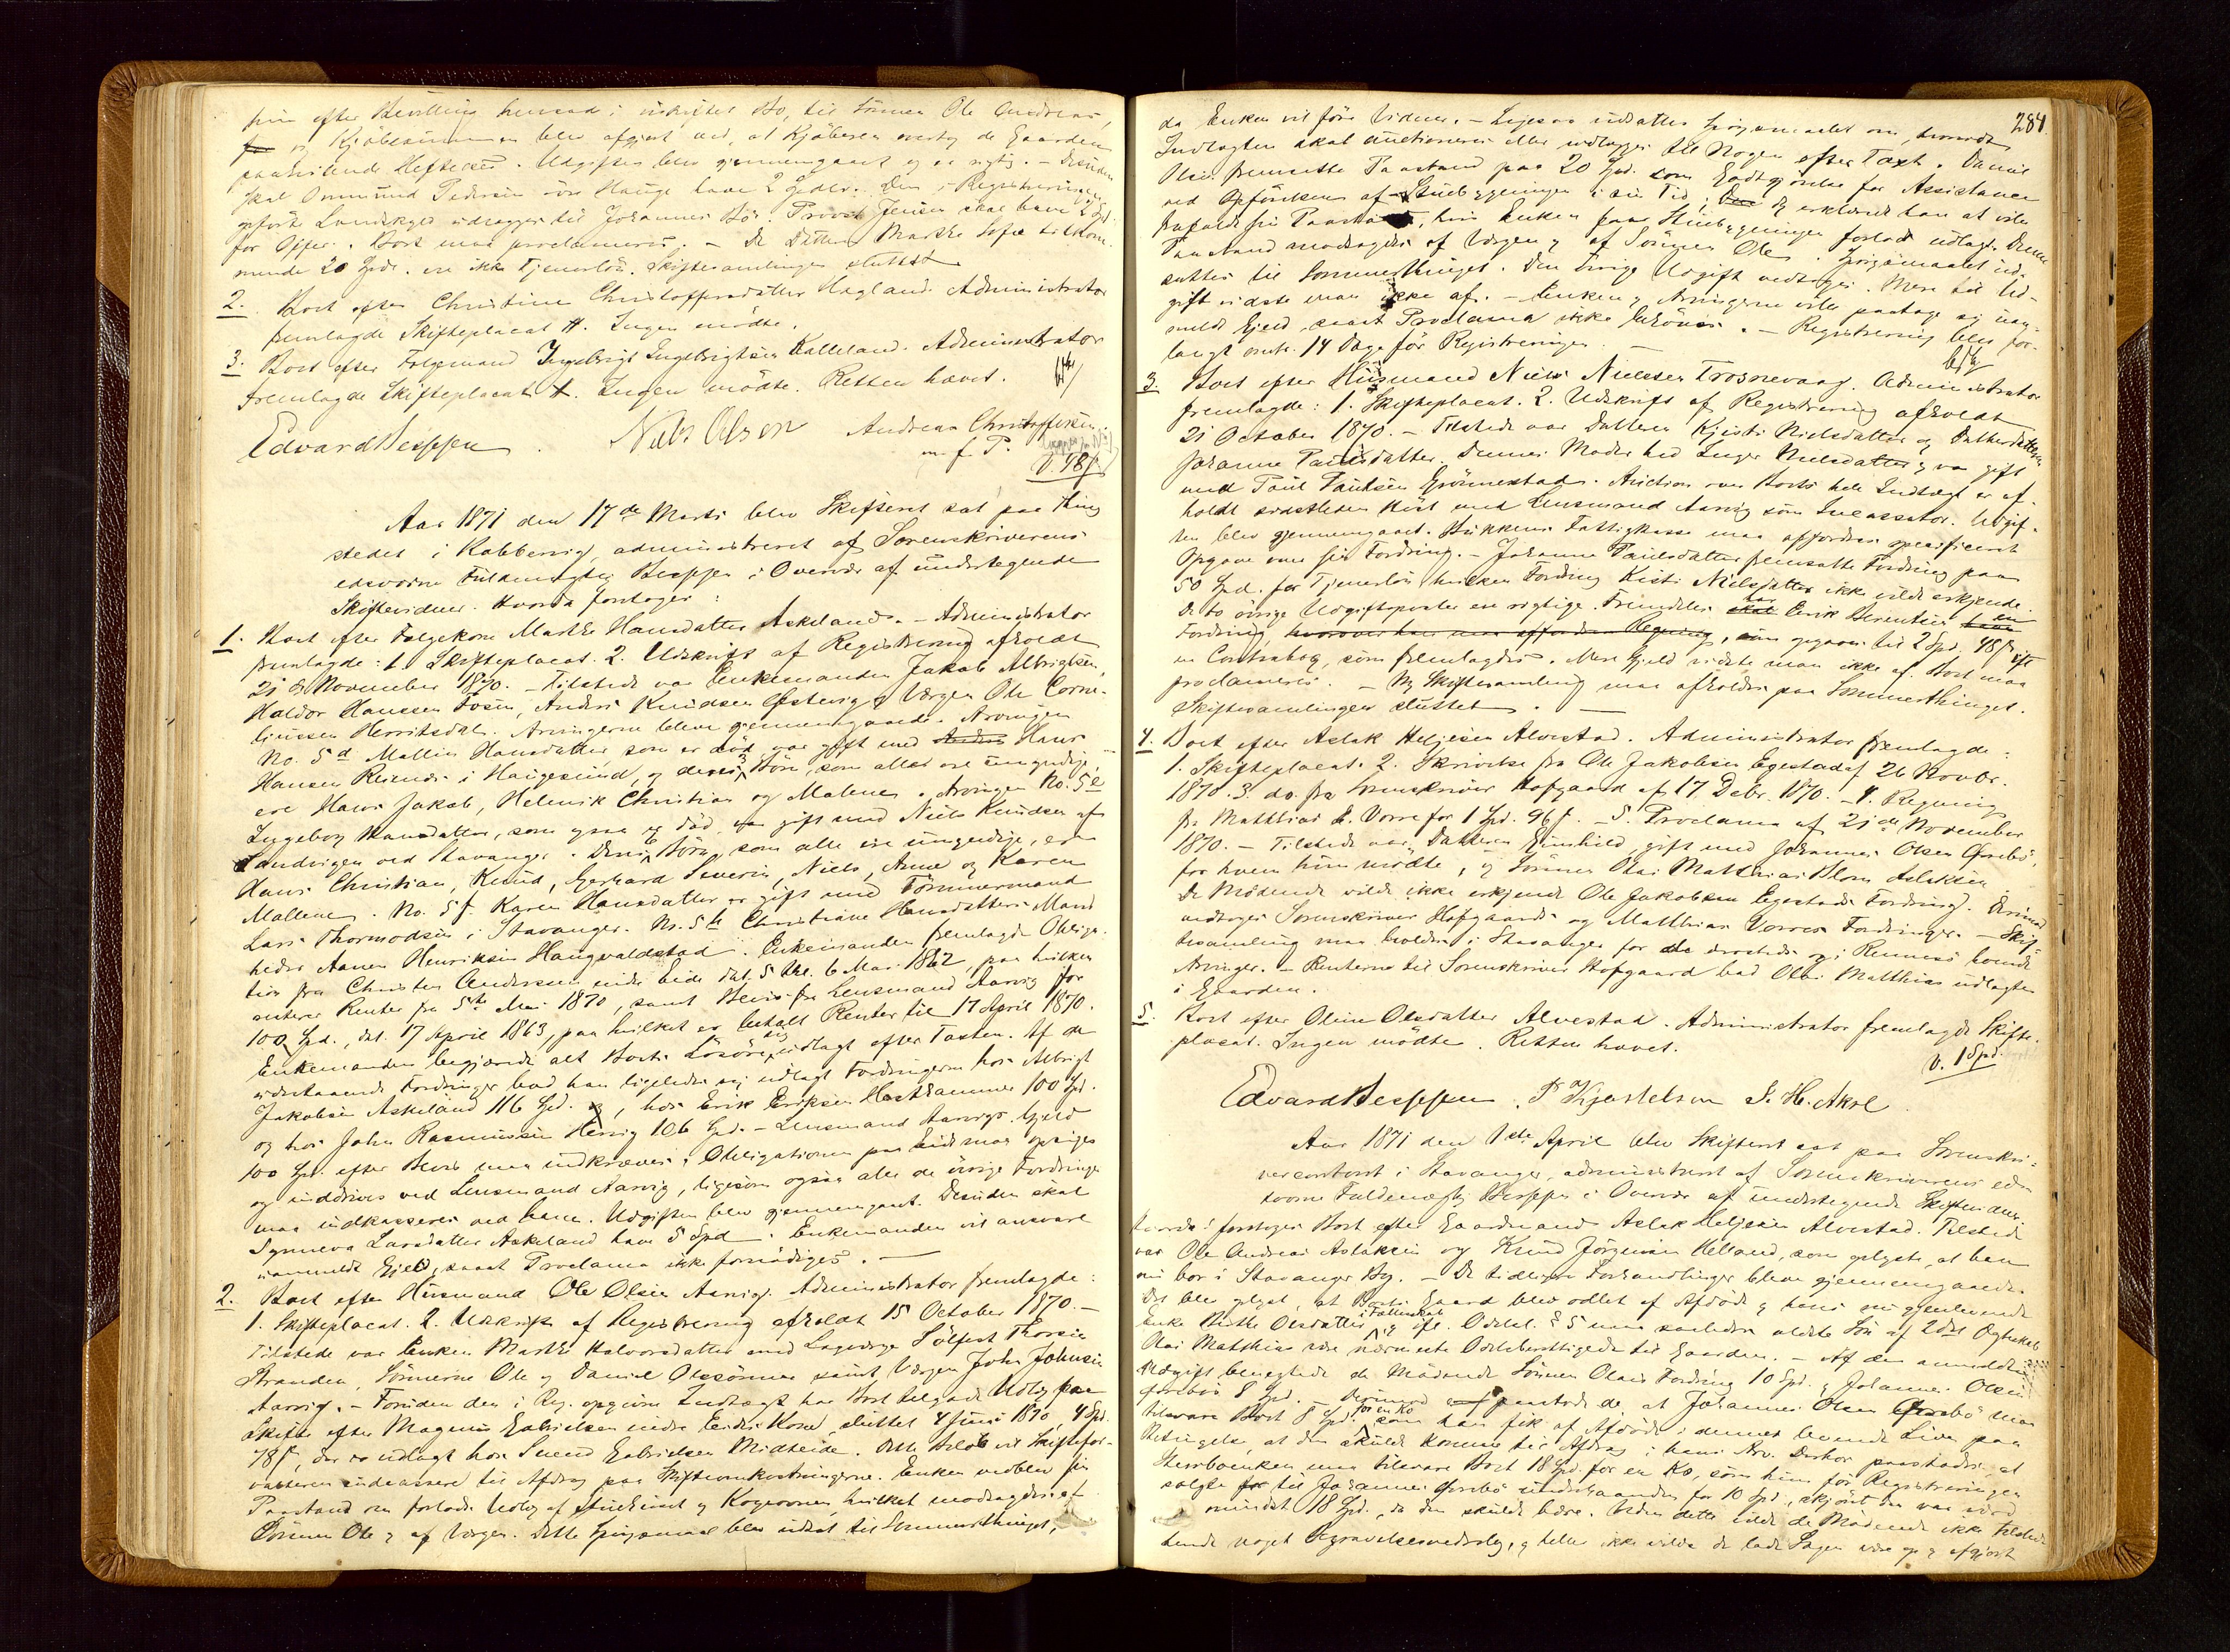 hun efter Bevilling hensad i uskiftet Bo, til Sönnen Ole Andreas,
og Kjöbesummen blev afgjort ved, at Kjöberen overtog de Gaarden
paahvilende Heftelser. Udgiften blev gjennemgaaet og er rigtig. - Desuden
skal Ommund Pedersen Hauge have 2 Spdlr. Den i Registreringen
opförte Landskyld udlægges til Johannes Bö. Provst Jensen skal have 2 Spd.
for Offer. Boet maa proclameres. - De Datteren Marthe Sofie tilkom-
mende 20 Spd. ere ikke Tjenerlön. Skiftesamlingen sluttet
2. Boet efter Christine Christoffersdatter Hagland. Administrator
fremlagde Skifteplacat #. Ingen mödte.
3. Boet efter Folgemand Ingebrigt Ingebrigtsen Kalleland. Administrator
fremlagde Skifteplacat #. Ingen mödte. Retten hævet.
Edvard Jespersen. Niels Olsen Andreas Christoffersen.
m. f. P.
V. 48 ß
Aar 1871 den 17de Marts blev Skifteret sat paa Thing
stedet i Kobbervig, administreret af Sorenskriverens
edsvorne Fuldmægtig Jespersen i Overvær af undertegnede
Skiftevidner. Hvorda foretages:
1. Boet efter Folgekone Marthe Hansdatter Askeland. - Administrator
fremlagde: 1. Skifteplacat. 2. Udskrift af Registrering afholdt
21 de November 1870. - Tilstede var Enkemanden Jakob Albrigtsen,
Haldor Hanssen Fosen, Anders Knudsen Östevig & Værgen Ole Corne-
liussen Hervitsdal. Arvingerne bleve gjennemgaaede. Arvingen
No. 5 d Mallene Hansdatter, som er död, var gift med Anders Hans
Hansen i Haugesund, og deres 3 Börn, som alle ere umyndige,
ere Hans Jakob, Helmik Christian og Malene. Arvingen No. 5 e
Ingeborg Hansdatter, som ogsaa er död, gift med Niels Knudsen af
Sandvigen ved Stavanger. Deres 6 Börn, som alle ere umyndige, ere
Hans Christian, Knud, Gerhard Severin, Niels, Anne og Karen
Mallene. No. 5 f. Karen Hansdatter er gift med Tömmermand
Lars Thormodsen i Stavanger. No. 5 h Christiane Hansdatters Mand
heder Aanen Henriksen Haugvaldstad. Enkemanden fremlagde Obliga-
tion fra Christen Andersen nedre Eide dat. 5 thl. 6 Mai 1862, paa hvilken
resterer Renter fra 5te Mai 1870, samt Bevis fra Lensmand Aarvig for
100 Spd., dat. 17 April 1863, paa hvilket er betalt Renter til 17 April 1870.
Enkemanden begjærede alt Boets Lösöre sig udlagt efter Taxten. Af de
udestaaende Fordringer bad han ligeledes sig udlagt Fordringerne hos Albrigt
Jakobsen Askeland 116 Spd. og, hos Erik Eriksen Hesthammer 100 Spd.
og hos John Rasmussen Hervig 106 Spd. - Lensmand Aarvigs Gjeld
100 Spd. efter Bevis maa indkræves. Obligationen paa Eide maa opsiges
og inddrives ved Lensmand Aarvig, ligesom ogsaa alle de övrige Fordringer
maa indkasseres ved ham. Udgiften blev gjennemgaaet. Desuden skal
Synneva Larsdatter Askeland have 5 Spd. Enkemanden vil ansvare
uanmeldt Gjeld, saaat Proclama ikke fornödiges. -
2. Boet efter Husmand Ole Olsen Aarvig. Administrator fremlagde:
1. Skifteplacat. 2. Udskrift af Registrering afholdt 15 October 1870. -
Tilstede var Enken Marthe Halvorsdatter med Lagværge Sölfest Thorsen
Stranden, Sönnerne Ole og Daniel Olssönner samt Værgen John Johnsen
Aarvig. - Foruden den i Reg. opgivne Indtægt har Boet tilgode Udlæg paa
Skifte efter Magnus Gabrielsen nedre Eides Kone, sluttet 4 Juni 1870, 4 Spd.
78 ß, der er udlagt hos Svend Gabrielsen Midtheide. Dette Belöb vil Skiftefor-
valteren indcassere til Afdrag paa Skifteomkostningerne. Enken vedblev sin
Paastand om forlods Udlæg af Stuehuset og Kogeovnen, hvilket modtagdes af
Sönnen Ole & af Værgen. Dette Spörgsmaal blev udsat til Sommerthinget,
284.
da Enken vil före Vidner. - Ligesaa udsattes Spörgsmaalet om, hvorvidt
Indtægten skal auctioneres eller udlægges til Nogen efter Taxt. Daniel
Olsen fremsatte Paastand paa 20 Spd. som Godtgjörelse for Assistance
ved Opförelsen af Stuebygningen i sin Tid; Den og erklærede han at ville
frafalde sin Paastand, hvis Enken faar Stuebygningen forlods udlagt. Denne
Paastand modsagdes af Værgen & af Sönnen Ole. Spörgsmaalet ud-
sattes til Sommerthinget. Den övrige Udgift vedtoges. Mere til Ud-
gift vidste man ikke af. - Enken & Arvingerne ville paatage sig uan-
meldt Gjeld, saaat Proclama ikke behöves. - Registrering blev for-
langt omtr. 14 Dage för Registreringen. -
3. Boet efter Husmand Niels Nielsen Trosnevaag. Administrator
fremlagde: 1. Skifteplacat. 2. Udskrift af Registrering afholdt
21 October 1870. - Tilstede var Datteren Kjersti Nielsdatter og Datterdatteren
Johanne Paulsdatter. Dennes Moder hed Inger Nielsdatter & var gift
med Paul Paulsen Grönnestad. Auction over Boets hele Indtægt er af-
holdt sidstleden Höst med Lensmand Aarvig som Incassator. Udgif-
ten blev gjennemgaaet. Bukkens Fattigkasse maa affordres specificeret
Opgave over sin Fordring. - Johanne Paulsdatter fremsatte Fordring paa
50 Spd. for Tjenerlön hvilken Fordring Kisti Nielsdatter ikke vilde erkjende.
De to övrige Udgiftsposter ere rigtige. Fremdeles skal har Erik Berentsen have en
Fordring, hvorover han maa affordres Regning, som opgaves til 2 Spd. 48 ß eft
en Contrabog, som fremlagdes. Mere Gjeld vidste man ikke af. Boet maa
proclameres. - Ny Skiftesamling maa afholdes paa Sommerthinget.
Skiftesamlingen sluttet. -
4. Boet efter Aslak Heljesen Alvestad. Administrator fremlagde:
1. Skifteplacat. 2. Skrivelse fra Ole Jakobsen Egestad af 26 Novbr.
1870. 3. do. fra Sorenskriver Hofgaard af 17 Debr. 1870. - 4. Regning
fra Matthias L. Vorre for 1 Spd. 96 ß. - 5. Proclama af 21de November
1870. - Tilstede var Datteren Gunhild, gift med Johannes Olsen Övrebö,
for hvem hun mödte, og Sönnen Olai Matthias Blom Aslaksen
De Mödende vilde ikke erkjende Ole Jakobsen Egestads Fordring. Derimod
vedtoges Sorenskriver Hofgaards og Matthias Vorres Fordringer. - Skif-
tesamling maa holdes i Stavanger for de dersteds og i Rennesö boende
Arvinger. - Renterne til Sorenskriver Hofgaard bad Olai Matthias udlagte
i Gaarden.
5. Boet efter Oline Olsdatter Alvestad. Administrator fremlagde Skifte-
placat. Ingen mödte. Retten hævet.
V. 1 Spd.
Edvard Jespersen. P Kjestelsen S. H. Aksl.
Aar 1871 den 1ste April blev Skifteret sat paa Sorenskri-
vercontoret i Stavanger, administreret af Sorenskriverens eds
svorne Fuldmægtig Jespersen i Overvær af undertegnede Skiftevidner
hvorda foretoges Boet efter Gaardmand Aslak Heljesen Alvestad. Tilstede
var Ole Andreas Aslaksen og Knud Jörgensen Helland, som oplyste, at han
nu bor i Stavanger By. - De tidligere Forhandlinger bleve gjennemgaaede.
Det blev oplyst, at Boets Gaard blev odlet af Afdöde & hans nu gjenlevende
Enke Olsdatter i Fællesskab, og ifl. Odelsl. § 5 maa saaledes ældste Sön af 2det Ægteskab
Olai Matthias være nærmeste Odelsberettigede til Gaarden. - Af den anmeldte
Udgift benegtede de Mödende Sönnen Olais Fordring 10 Spd. & Johannes Olsen
Övrebös 8 Spd. - Derimod paastode de, at Johannes Olsen Övrebö maa
tilsvare Boet 8 Spd. for en Ko som han fik af Afdöde i dennes levende Live paa
Betingelse, at den skulde komme til Afdrag i hans Arv. Derhos paastodes, at
Sterbboenken maa tilsvare Boet 18 Spd. for en Ko, som hun för Registreringen
solgte for til Johannes Övrebö underhaanden for 10 Spd., skjönt den var værd
mindst 18 Spd., da den skulde bære. Uden dette vilde de Mödende ikke tilstaa
hende noget Begravelsesvederlag, & heller ikke vilde de lade Sagen være op & afgjort